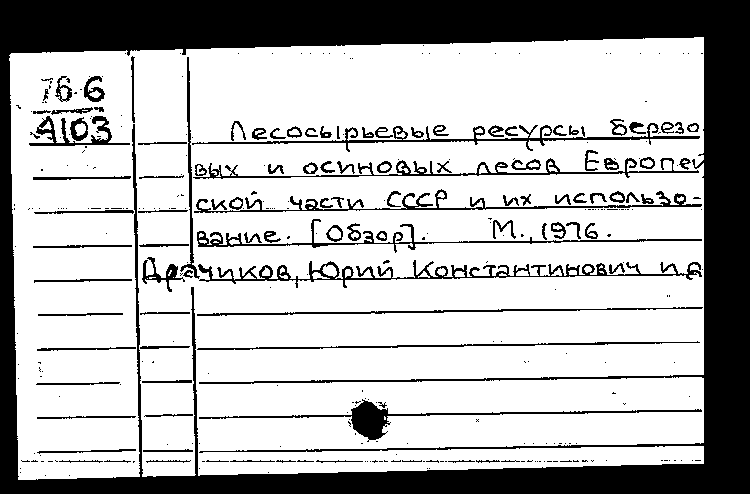 76-6
А103
Лесосырьевые ресурсы березо
вых и осиновых лесов Европей
ской части СССР и их использо-
вание. [Обзор]. М., 1976.
Драчиков, Юрий Константинович и д